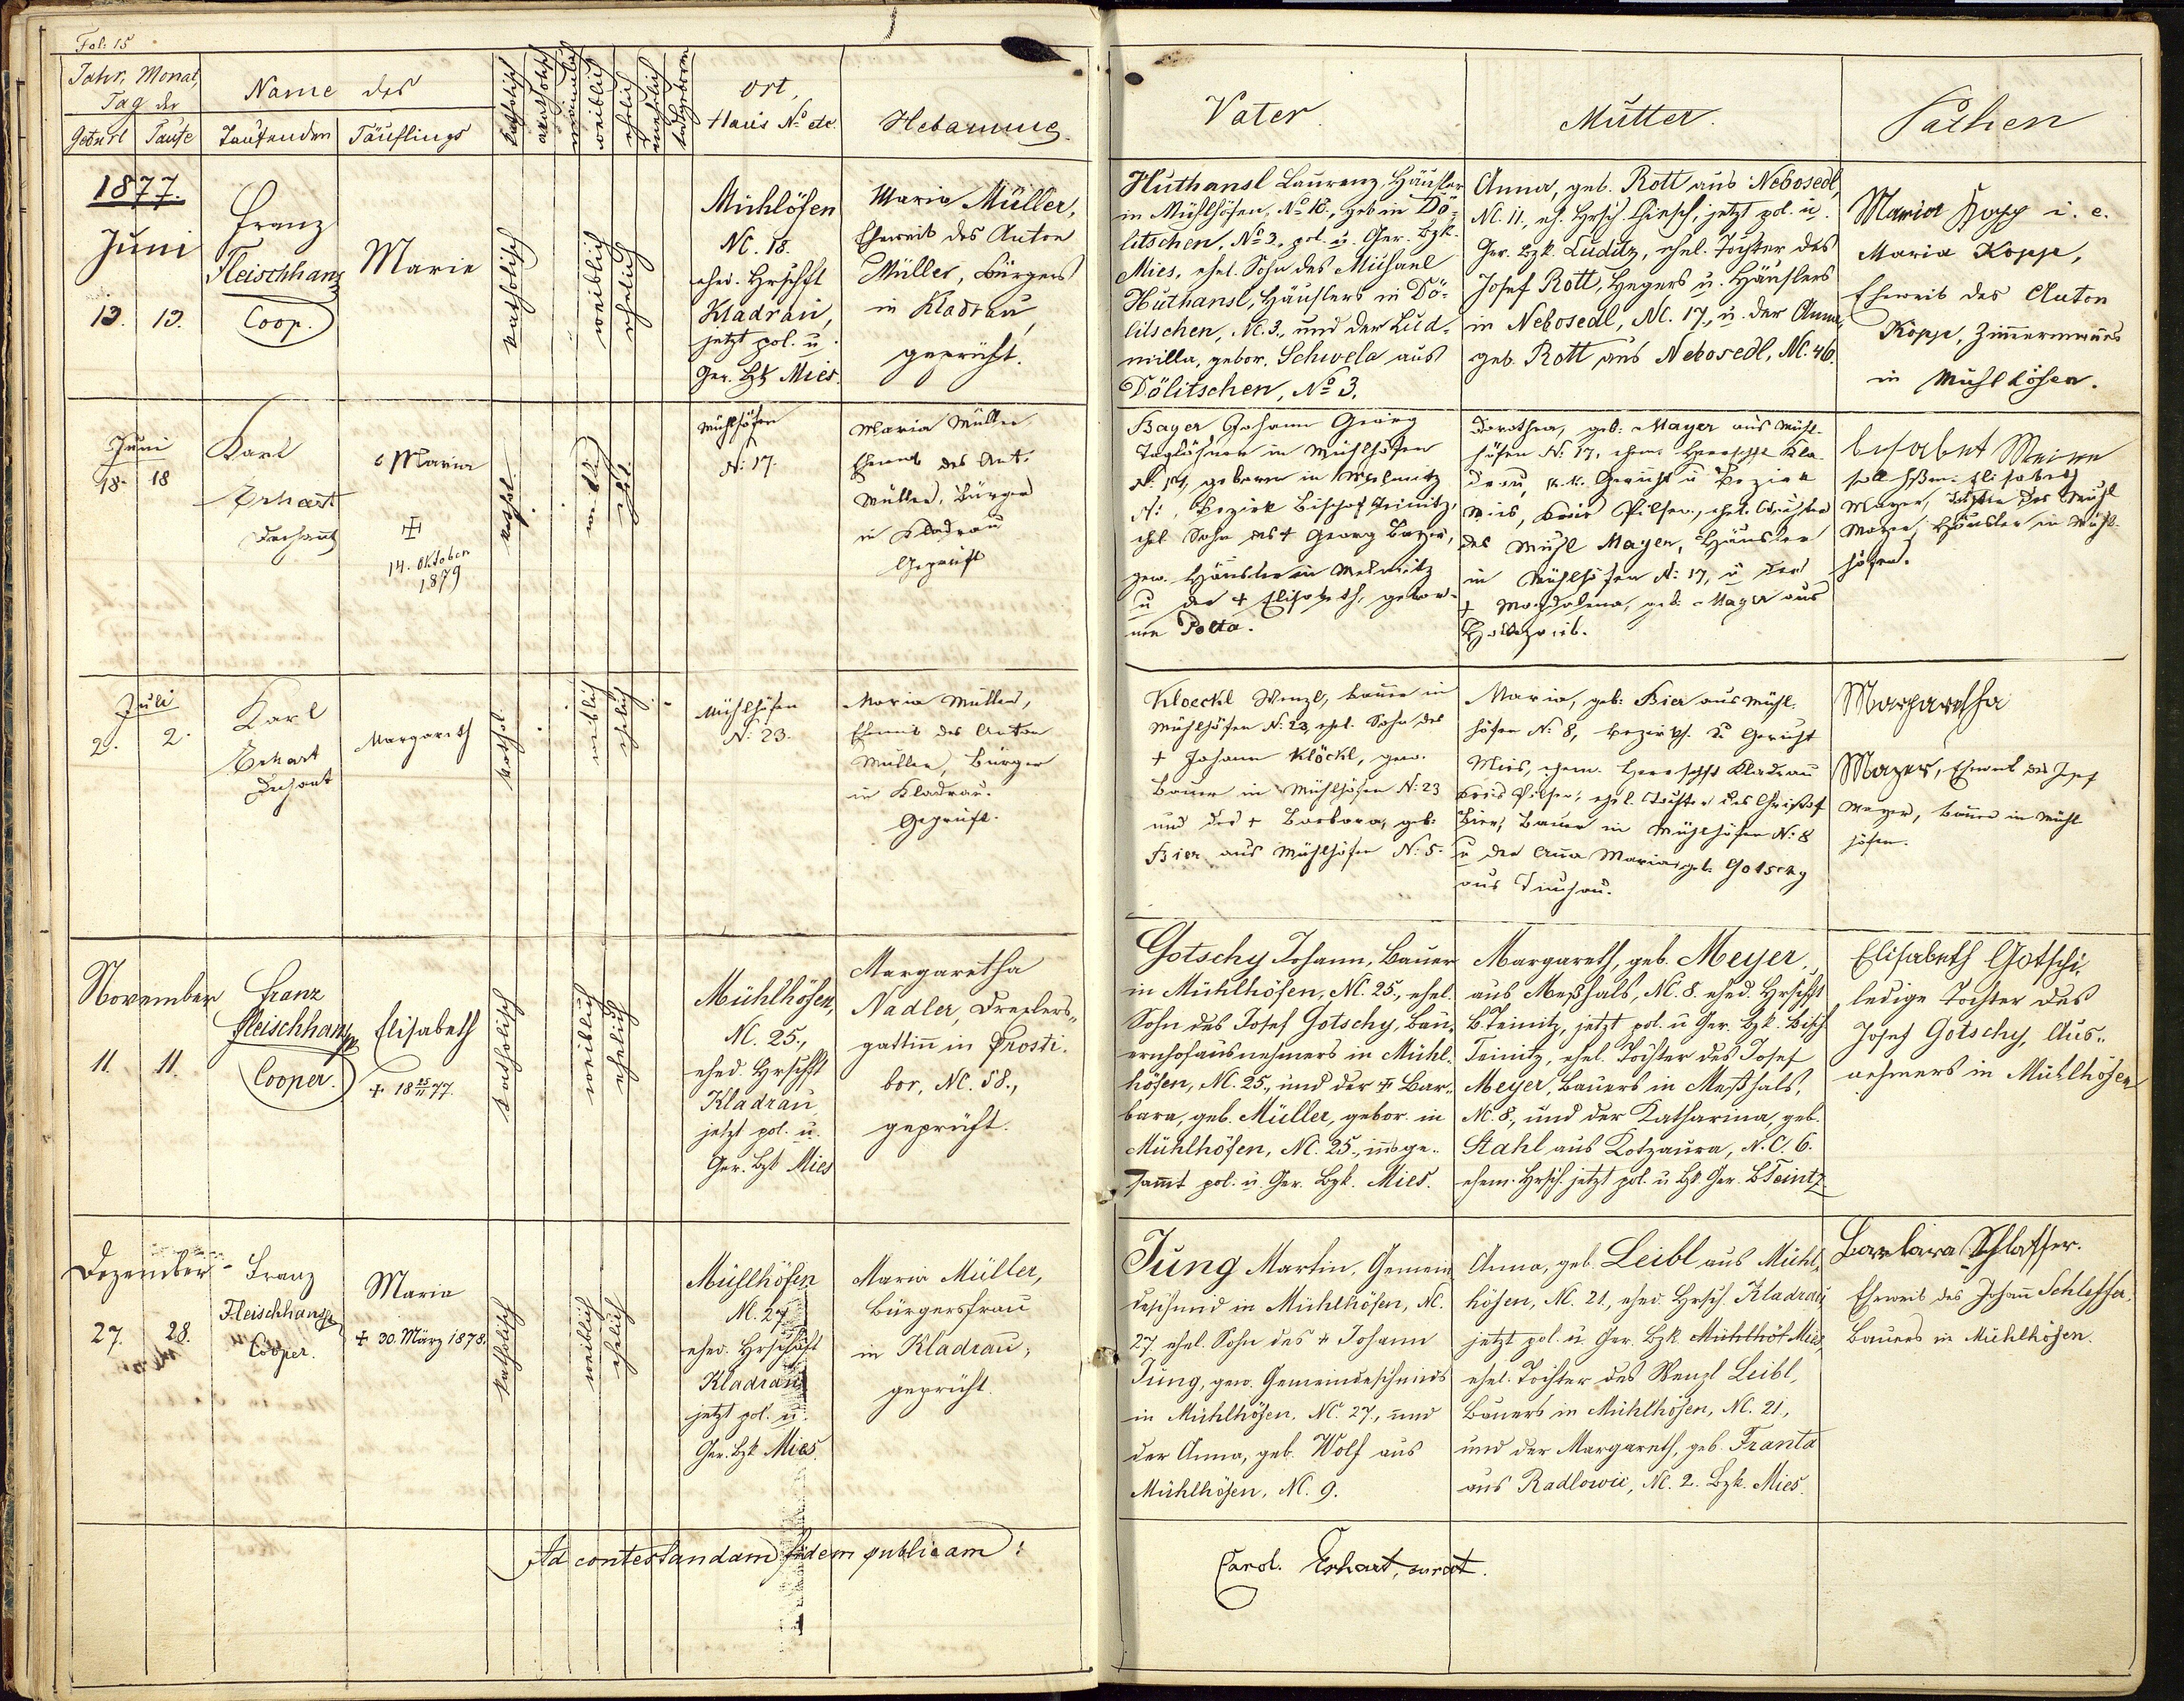 Fol: 15
Jahr, Monat,
Tag der
Geburt Taufe
Name des
Taufenden Täuflings
katholisch
akatholisch
männlich
weiblich
ehelich
unehelich
todtgeboren
Ort,
Haus No etc.
Hebamme.
Vater.
Mutter.
Pathen
1877.
Juni
13. 13.
Franz
Fleischhans
Coop.
Marie
katholisch
weiblich
ehelich
Mühlhöfen
NC. 18.
ehed. Hrschft
Kladrau,
jetzt pol. u.
Ger. Bzk Mies.
Maria Müller,
Eheweib des Anton
Müller, Bürgers
in Kladrau,
geprüft.
Huthansl Laurenz, Häusler
in Mühlhöfen, No 18., geb in Dö-
litschen, No 3, pol. u. Ger. Bzk.
Mies, ehel. Sohn des Michael
Huthansl, Häuslers in Dö-
litschen, NC. 3., und der Lud-
milla, gebor. Schwela aus
Dölitschen, No 3.
Anna, geb. Rott aus Nebosedl,
NC. 11., eh. Hrsch. Giesch, jetzt pol. u.
Ger. Bzk. Luditz, ehel. Tochter des
Josef Rott, Hegers u. Häuslers
in Nebosedl, NC. 17., u. der Anna,
geb. Rott aus Nebosedl, NC. 46.
Maria Kopp i. e.
Maria Kopp,
Eheweib des Anton
Kopp, Zimmermanns
in Mühlhöfen.
Juni
18. 18
Karl
Erhart
Dechant
Maria
14. Oktober
1879
kathol.
weibl.
ehl.
Mühlhöfen
N: 17.
Maria Müller
Eheweib des Ant.
Müller, Bürger
in Kladrau
Geprüft
Bayer Johann Georg
Taglöhner in Mühlhöfen
N: 17, geboren in
N: , Bezirk Bischof Teinitz,
ehel. Sohn des + Georg Bayer,
gew. Häusler in
u der + Elisabeth, gebor-
nen Polta.
Dorothea, geb: Mayer aus Mühl-
höfen N: 17, ehem: Herrschft Kla-
drau, k.k. Gericht u Bezirk
Mies, Kreis Pilsen, ehel. Tochter
des Michl Mayer, Häusler
in Mühlhöfen N: 17, u der
+ Magdalena, geb: Mayer aus
Elisabeth
Mayer, Tochter des Michl
Mayer, Häusler in Mühl-
höfen.
Juli
2. 2.
Karl
Erhart
Dechant
Margareth
kathol.
weiblich
ehelich
Mühlhöfen
N: 23.
Maria Müller,
Eheweib des Anton
Müller, Bürger
in Kladrau.
Geprüft.
Kloeckl Wenzl, Bauer in
Mühlhöfen N: 23, ehel. Sohn des
+ Johann Klöckl, gew.
Bauer in Mühlhöfen N: 23
und der + Barbara, geb:
Bier aus Mühlhöfen N: 5.
Maria, geb: Bier aus Mühl-
höfen N: 8, Bezirks u Gericht
Mies, ehem. Herrschft Kladrau
Kreis Pilsen, ehel. Tochter des Christof
Bier, Bauer in Mühlhöfen N: 8
u der Anna Maria, geb. Gotschy
aus Tinchau.
Margaretha
Mayer, Eheweib des Josef
Mayer, Bauer in Mühl
höfen.
November
11. 11.
Franz
Fleischhans
Cooper.
Elisabeth
+ 18 25/11 77.
katholisch
weiblich
ehelich
Mühlhöfen,
NC. 25.,
ehed. Hrschft
Kladrau,
jetzt pol. u.
Ger. Bzk Mies
Margaretha
Nadler, Drexlers-
gattin in Prosti-
bor, NC. 58.,
geprüft.
Gotschy Johann, Bauer
in Mühlhöfen, NC. 25., ehel.
Sohn des Josef Gotschy, Bau-
ernhofausnehmers in Mühl-
höfen, NC. 25., und der + Bar-
bara, geb. Müller, gebor. in
Mühlhöfen, NC. 25., insge-
sammt pol. u. Ger. Bzk. Mies.
Margareth, geb. Meyer,
aus Meßhals, NC. 8. ehed. Hrschft
B. Teinitz, jetzt pol. u Ger. Bzk. Bisch
Teinitz, ehel. Tochter des Josef
Meyer, Bauers in Meßhals,
NC. 8., und der Katharina, geb.
Stahl aus Kotzaura, N.C. 6.
ehem. Hrsch. jetzt pol. u Bzk Ger. B. Teinitz
Elisabeth Gotschi,
ledige Tochter des
Josef Gotschy, Aus-
nehmers in Mühlhöfen
Dezember
27. 28.
Franz
Fleischhans
Cooper.
Maria
+ 30. März 1878.
katholisch
weiblich
ehelich
Mühlhöfen
NC. 27
ehed. Hrschaft
Kladrau
jetzt pol. u.
Ger. Bzk Mies.
Maria Müller,
Bürgersfrau
in Kladrau,
geprüft.
Jung Martin, Gemein
deschmid in Mühlhöfen, NC.
27. ehel. Sohn des + Johann
Jung, gew. Gemeindeschmids
in Mühlhöfen, NC. 27., und
der Anna, geb. Wolf aus
Mühlhöfen, NC. 9.
Anna, geb. Leibl aus Mühl-
höfen, NC. 21., ehed. Hrsch. Kladrau
jetzt pol. u Ger. Bzk. Mühlhöf Mies,
ehel. Tochter des Wenzl Leibl,
Bauers in Mühlhöfen, NC. 21.,
und der Margareth, geb. Franta
aus Radlowic, NC. 2. Bzk. Mies.
Barbara Schlosser.
Eheweib des Johann Schlosser,
Bauers in Mühlhöfen.
Ad contestandam fidem publicam:
Carol. Erhart, curat.